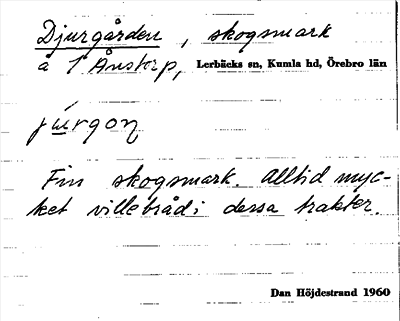 Djurgården, skogsmark
å 1 Ånstorp, Lerbäcks sn, Kumla hd, Örebro län
Fin skogsmark. Alltid myc-
ket villebråd i dessa trakter.
Dan Höjdestrand 1960